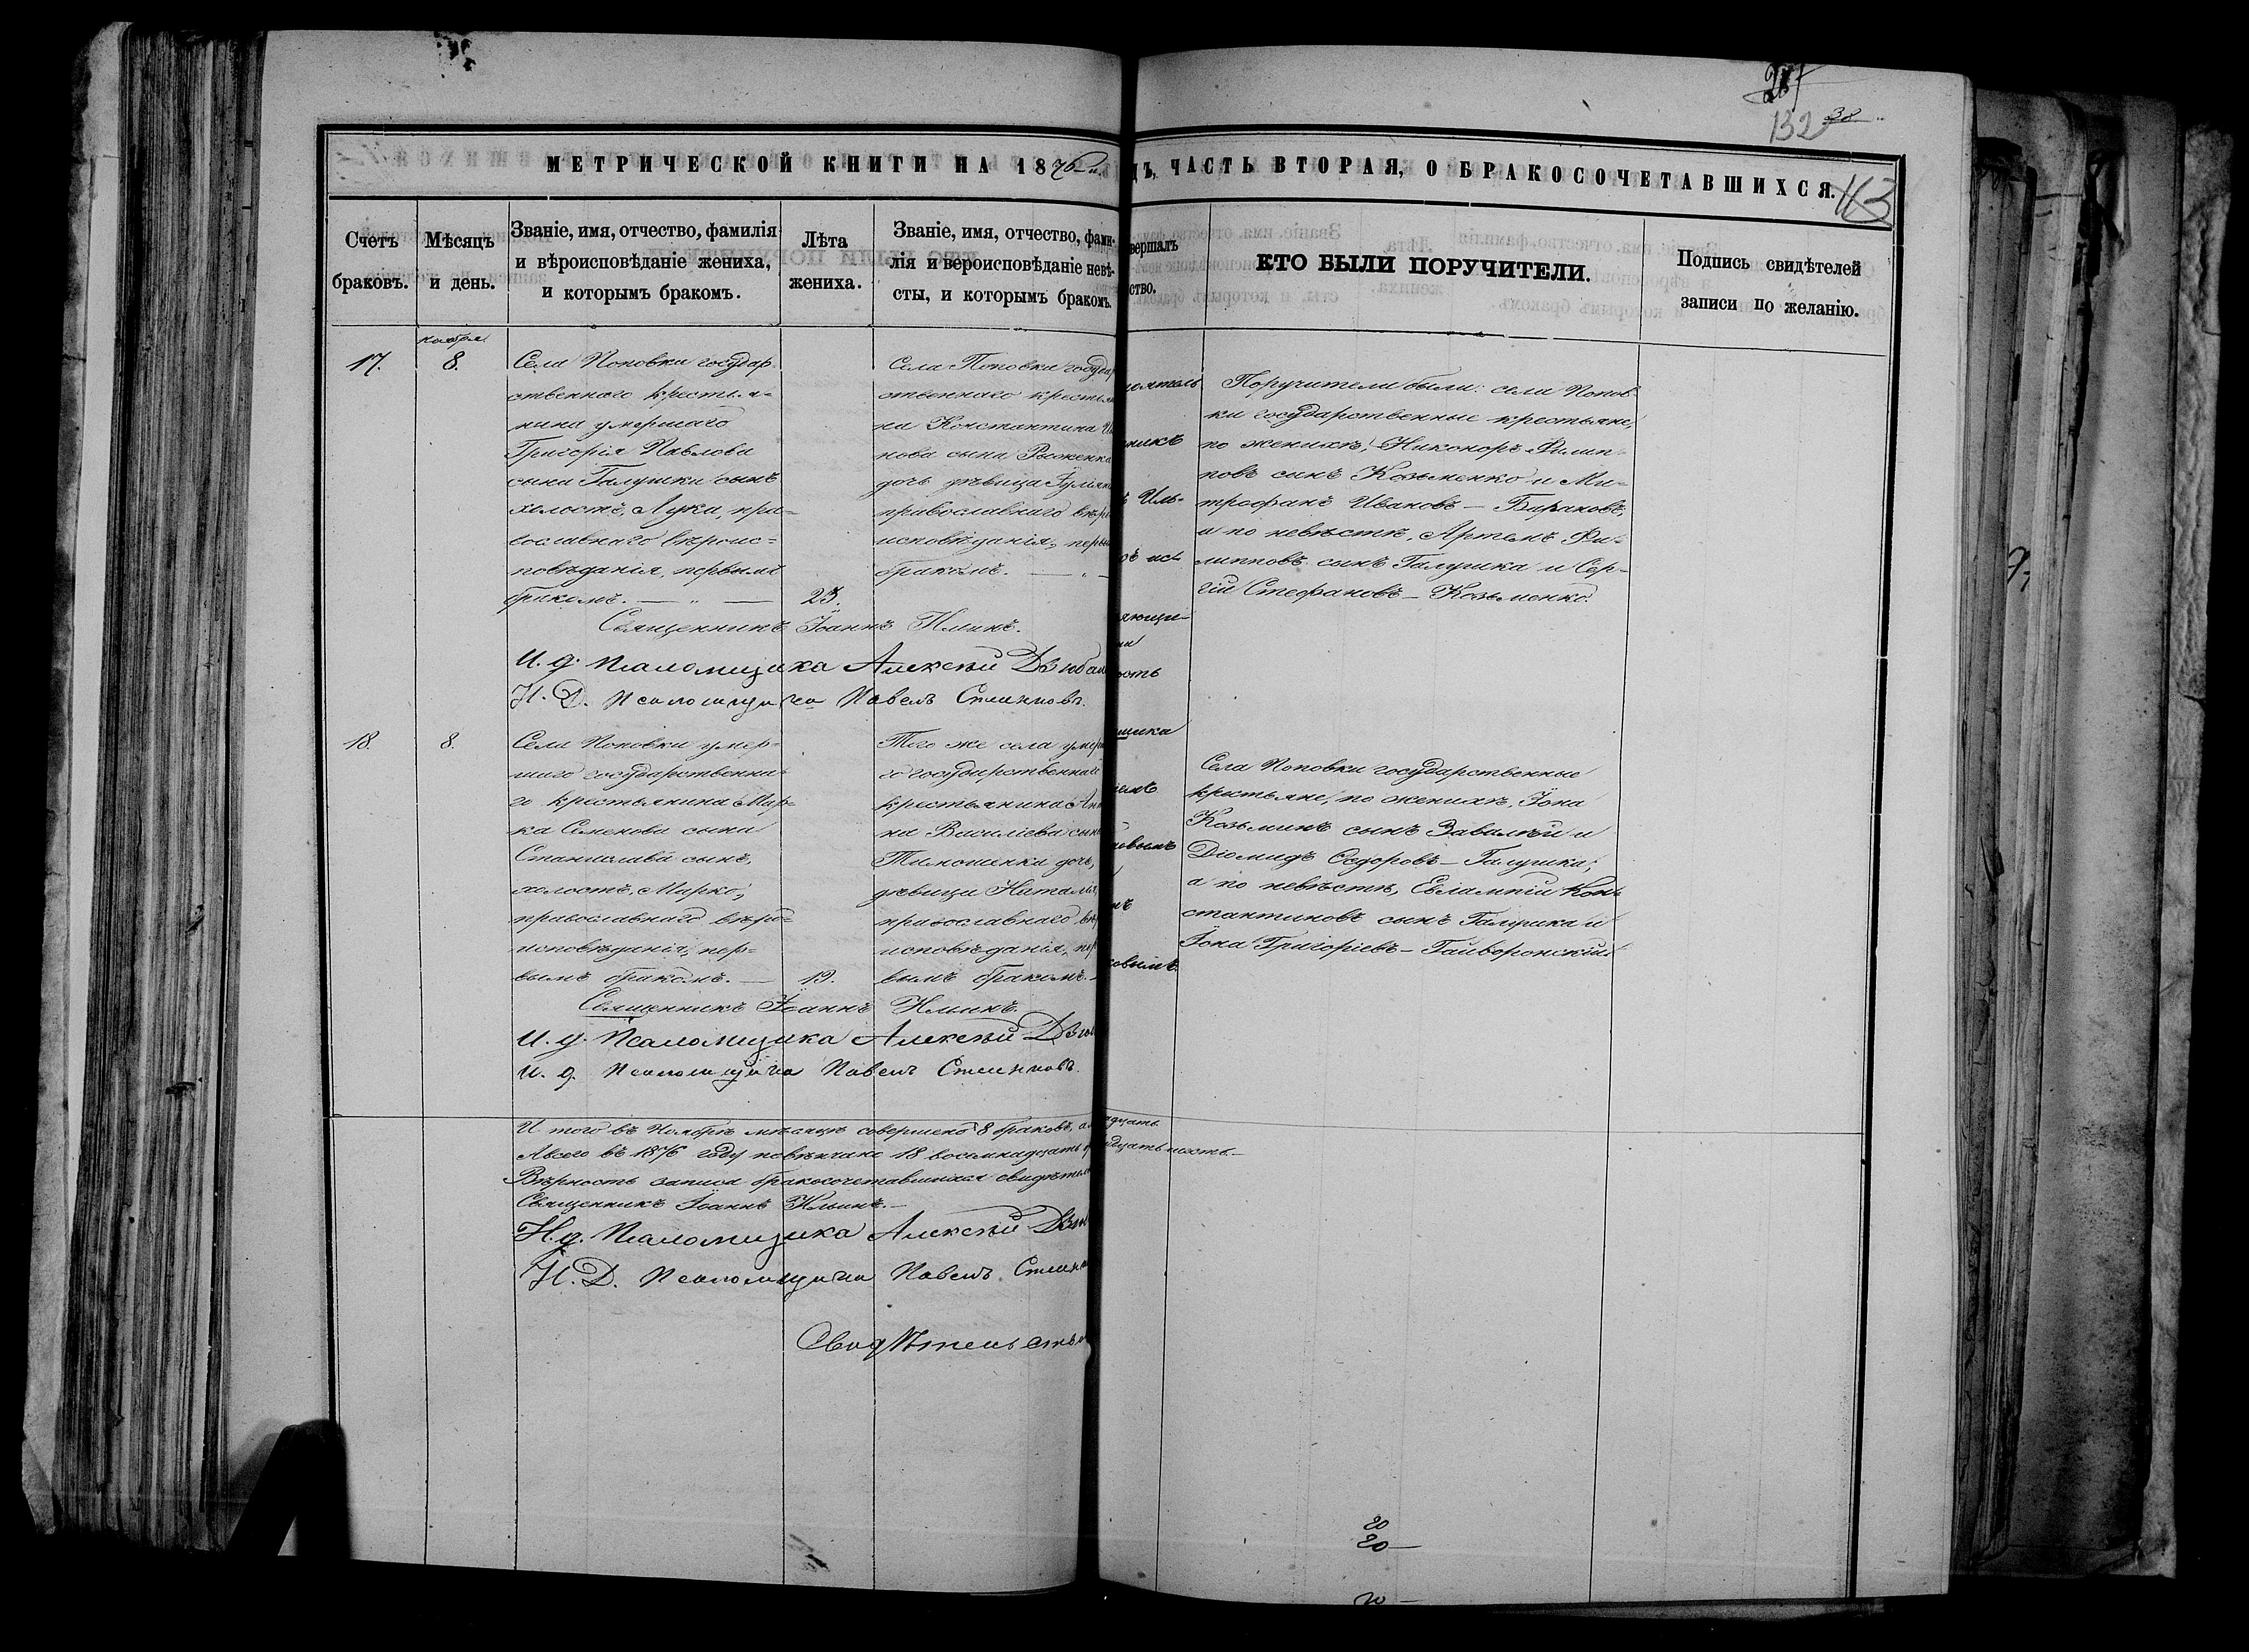 132
38
МЕТРИЧЕСКОЙ КНИГИ НА 1876
ДЪ, ЧАСТЬ ВТОРАЯ, О БРАКОСОЧЕТАВШИХСЯ.
113
Счетъ
браковъ.
Мѣсяцъ
и день.
Званіе, имя, отчество, фамилія
и вѣроисповѣданіе жениха,
и которымъ бракомъ.
Лѣта
жениха.
Званіе, имя, отчество, фами-
лія и вероисповѣданіе невѣ-
сты, и которымъ бракомъ.
вершалъ
ство.
КТО БЫЛИ ПОРУЧИТЕЛИ.
Подпись свидѣтелей
записи по желанію.
ноября
17.
8.
Села Поповки государ
ственнаго крестья-
нина умершаго
Григорія Павлова
сына Галушки сынъ
холостъ, Лука, пра-
вославнаго вѣроис-
повѣданія, первымъ
бракомъ. — „ —
23.
Села Поповки госуда
ственнаго крестья
на Константина
нова сына Рыженка
дочь дѣвица
православнаго вѣр
исповѣданія, перв
бракомъ. — „ —
Поручители были: села Попов-
ки государственные крестьяне,
по женихѣ, Никоноръ Филип-
повъ сынъ Козьменко и Ми-
трофанъ Ивановъ — Барановъ,
а по невѣстѣ, Артемъ Фи-
липповъ сынъ Галушка и Сер-
гій Стефановъ — Козьменко.
Священникъ Іоаннъ Ильинъ.
И. д. псаломщика Алексѣй
И. Д. Псаломщика Павелъ
18.
8.
Села Поповки умер-
шаго государственна-
го крестьянина Мар-
ка Семенова сына
Станислава сынъ,
холостъ, Марко,
православнаго вѣро-
исповѣданія, пер-
вымъ бракомъ. —
19.
Того же села умер
го государственнаго
крестьянина
на Василіева сына
Тимошенки дочь,
дѣвица Наталія,
православнаго вѣр
исповѣданія, пер
вымъ бракомъ.
Села Поповки государственные
крестьяне, по женихѣ, Іона
Козьминъ сынъ Завалѣй и
Діомидъ Ѳедоровъ — Галушка;
а по невѣстѣ, Евлампій Кон-
стантиновъ сынъ Галушка и
Іона Григоріевъ — Гайворонскій
Священникъ Іоаннъ Ильинъ.
И. д. Псаломщика Алексѣй
И. д. Псаломщика Павелъ
И того въ Ноябрѣ мѣсяцѣ совершено 8 браковъ, а
Авсего въ 1876 году повѣнчано 18 восемнадцать
дцать шесть.—
Вѣрность записи бракосочетавшихся свидѣтел
Священникъ Іоаннъ Ильинъ.—
И. д. Псаломщика Алексѣй
И. Д. Псаломщика Павелъ
Свидѣтельств
20
20 —